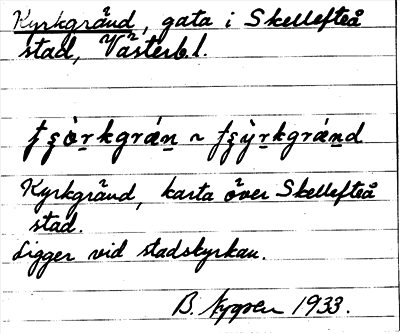 Kyrkgränd, gata i Skellefteå
stad, Västerb. l.
tşò̱rkgrán̠ ~ tşỳ̱rkgrán̠d
Kyrkgränd, karta över Skellefteå
stad.
Ligger vid stadskyrkan.
B. Nygren 1933.